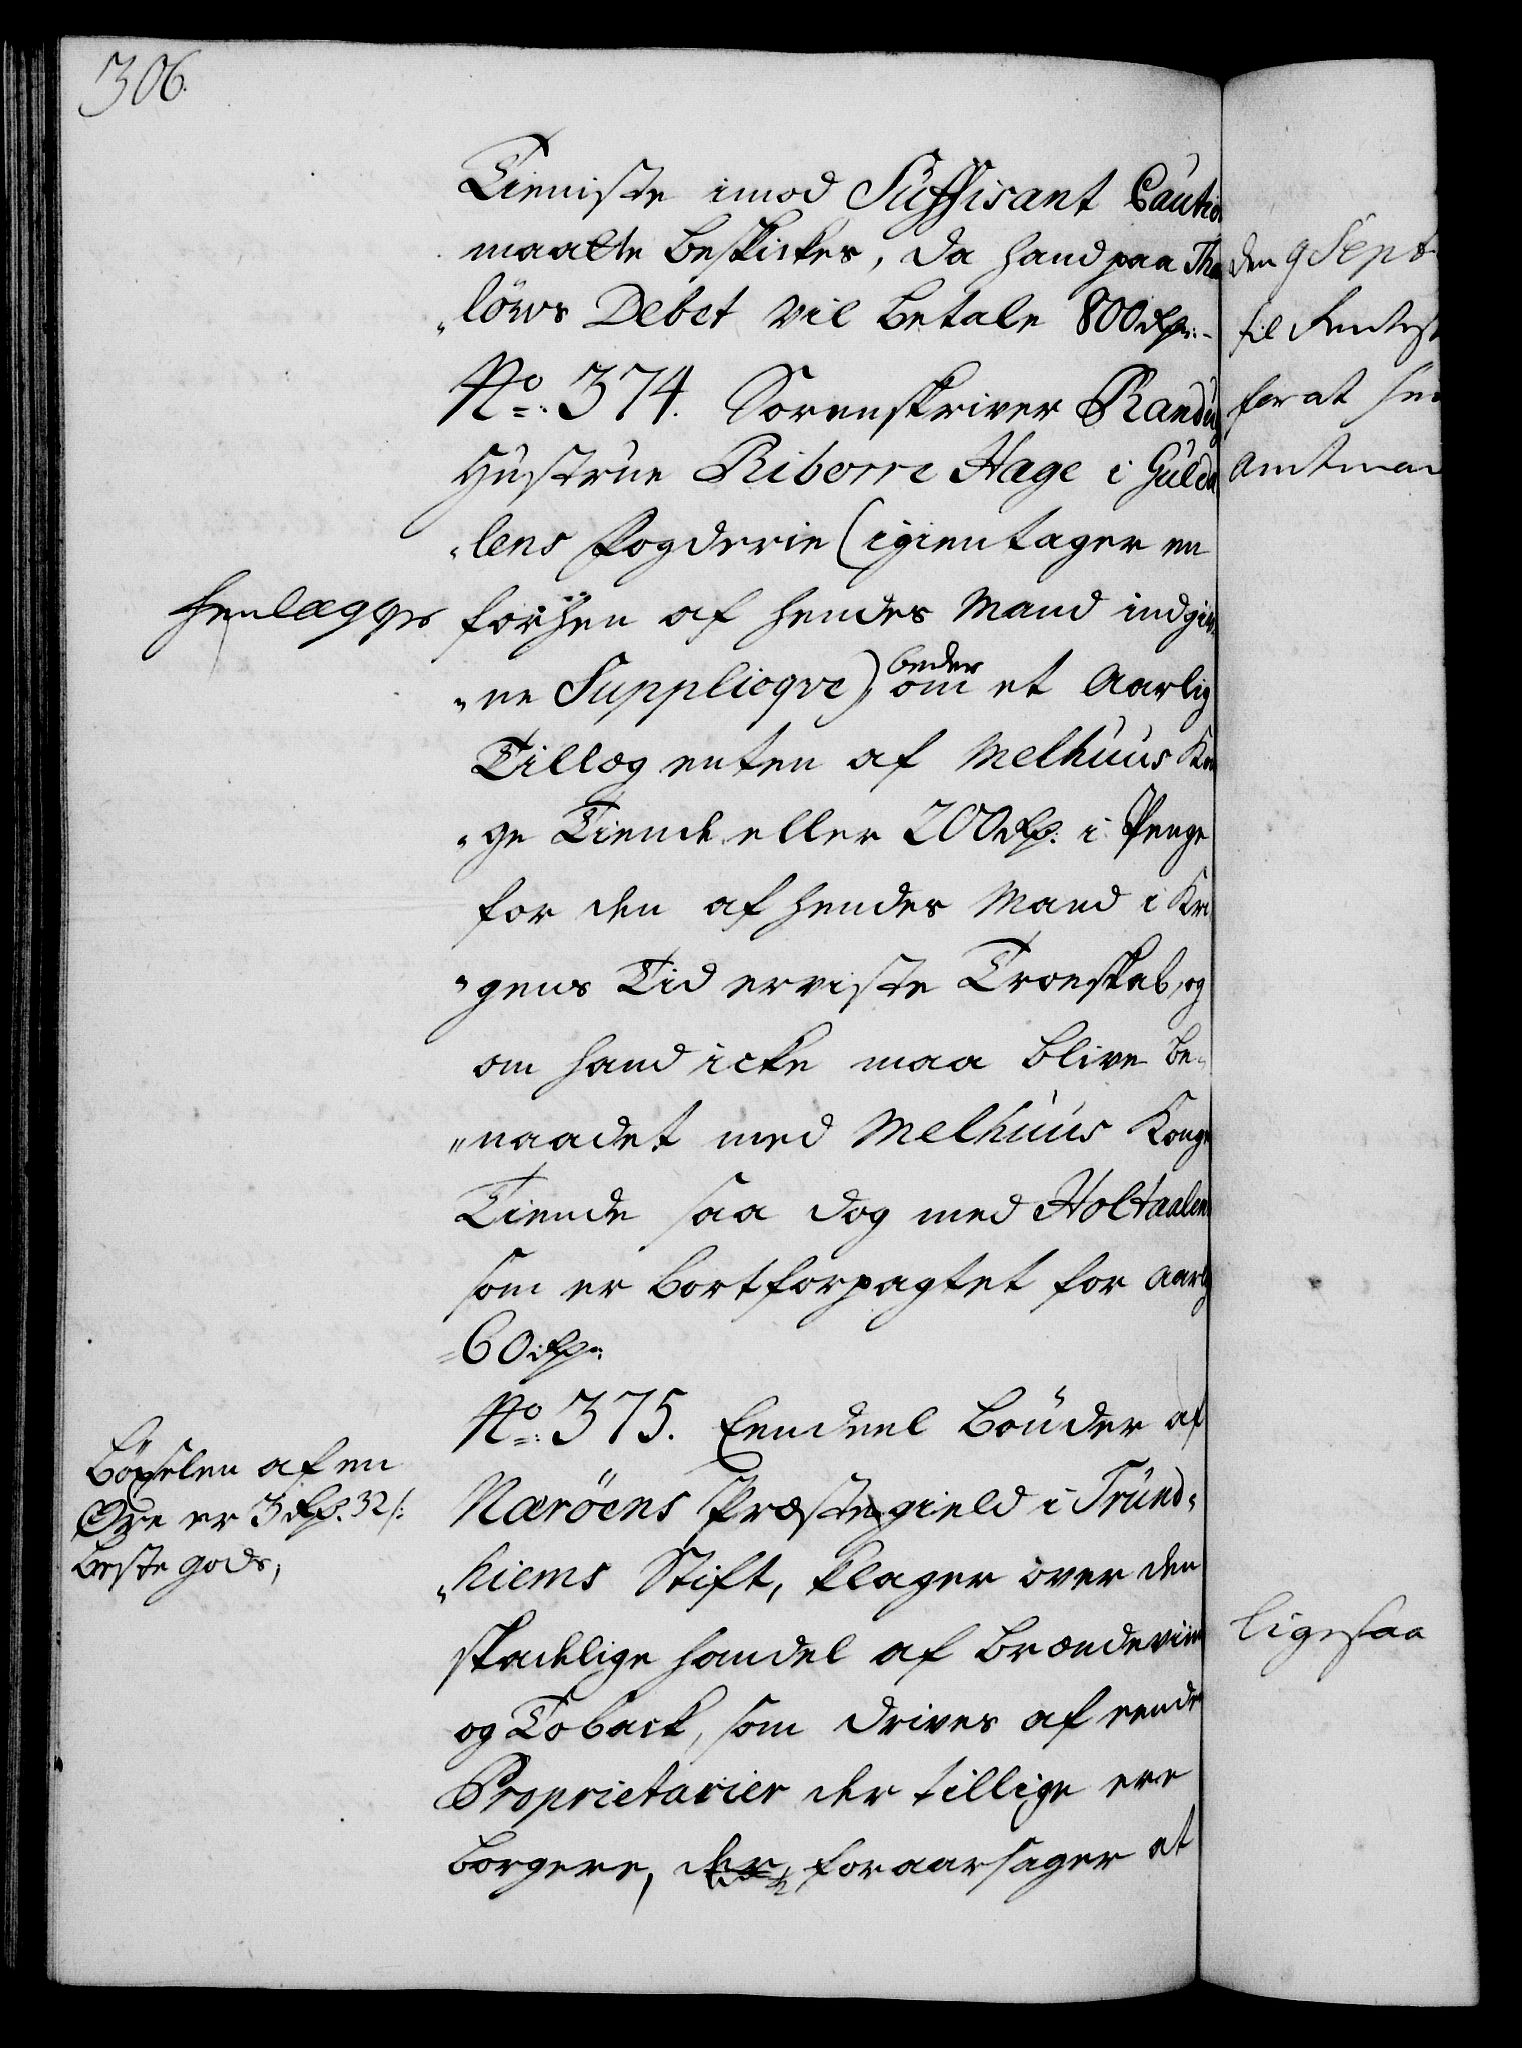 306.
Tieniste imod Suffisant Cautio
maatte beskickes, da hand paa Tho
„löws Debet vil betale 800 rdr:
No: 374. Sorenskriver Randu
Hustrue Riborre Hage i Guld
„lens Fogderie (igientager en
forhen af hendes Mand indgiv
„ne Supplicqve) beder om et Aarlig
Tillæg enten af Melhuus Kon
„ge Tiende eller 200 rdr. i Penge
for den af hendes Mand i Kri
„gens Tid erviste Troeskab, og
om hand icke maa blive be„
„naadet med Melhuus Konge
Tiende saa dog med Holtaalen
som er bortforpagtet for aarlig
60 rdr:
No: 375. Eendeel Bønder af
Næröens Præstegield i Trund„
„hiems Stift, klager över den
skadelige Handel af Brændeviin
og Toback, som drives af eende
Proprietarier der tillige ere
borgere, der foraarsager at
henlægges
böxelen af en
Øre er 3 rdr. 32 s:
beste gods,
den 9 Sept
til Rentes
for at
Amtman
ligesaa